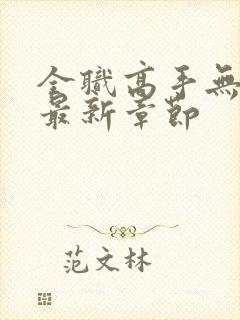 全職高手無
最新章節
范文林